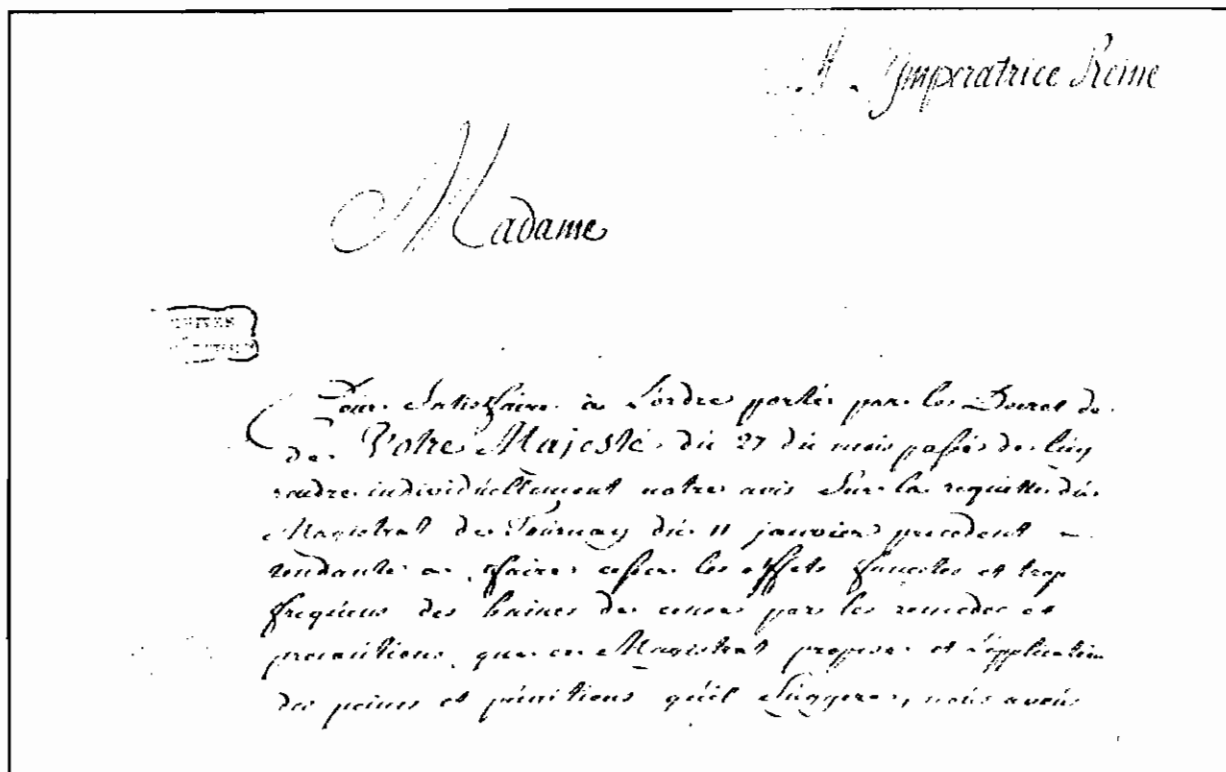 A L'Imperatrice Reine
Madame
Pour Satisfaire à L'ordre portés par le Decret de
de Votre Majesté du 27 du mois passé de luy
rendre individuellement notre avis Sur la requette du
Magistrat de Tournay du 11 janvier precedent
tendante a faire cesser les effets funestes et trop
frequens des haines de censes par les remedes et
precautions que ce Magistrat propose et l'application
des peines et punitions qu'il Suggere, nous avons